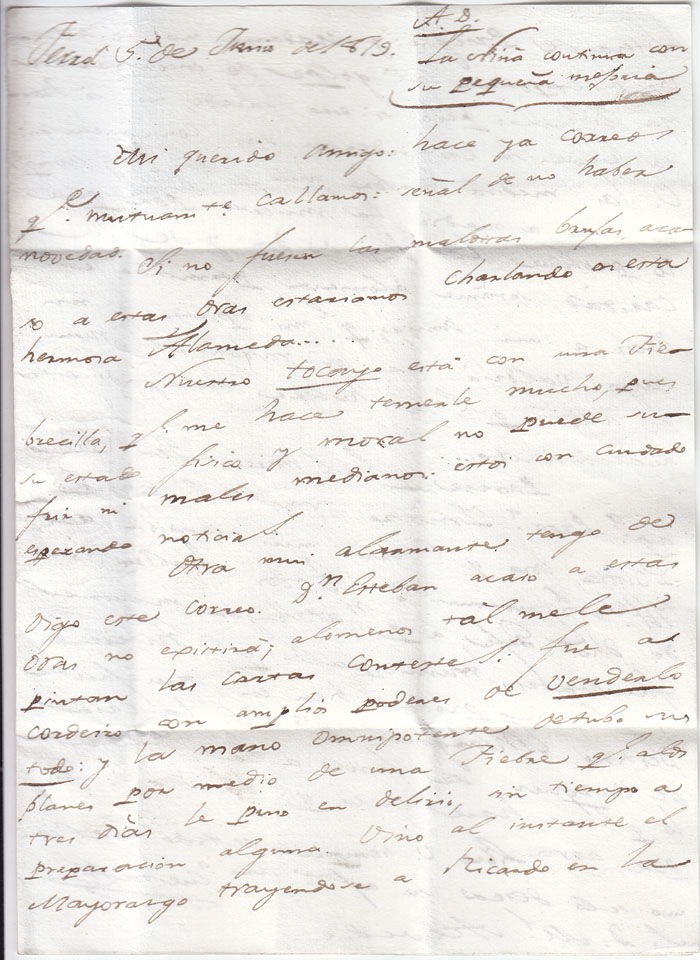 A. D.
Ferrol 5. de Junio de 1819.
La Niña continua con
su pequeña mejoria
Mi querido Amigo: hace ya correos
q.e mutuam.te callamos: señal de no haber
novedad. Si no fueran las malditas brujas, aca-
so a estas oras estariamos charlando en esta
hermosa Alameda.....
Nuestro tocayo está con una Fie-
brecilla, q.e me hace temerle mucho, pues
su estado fisico y moral no puede su-
frir ni males medianos: estoi con cuidado
esperando noticias.
Otra mui alarmante tengo de
Vigo este correo. D.n Esteban acaso a estas
oras no existirá; alomenos tál mele
pintan las cartas contestes. fue a
Cordeiro con amplios poderes de venderlo
todo: y la mano omnipotente detubo sus
planes por medio de una Fiebre q.e alos
tres dias le puso en delirio, sin tiempo a
preparacion alguna. Vino al instante el
Mayorazgo trayendose a Ricardo en la